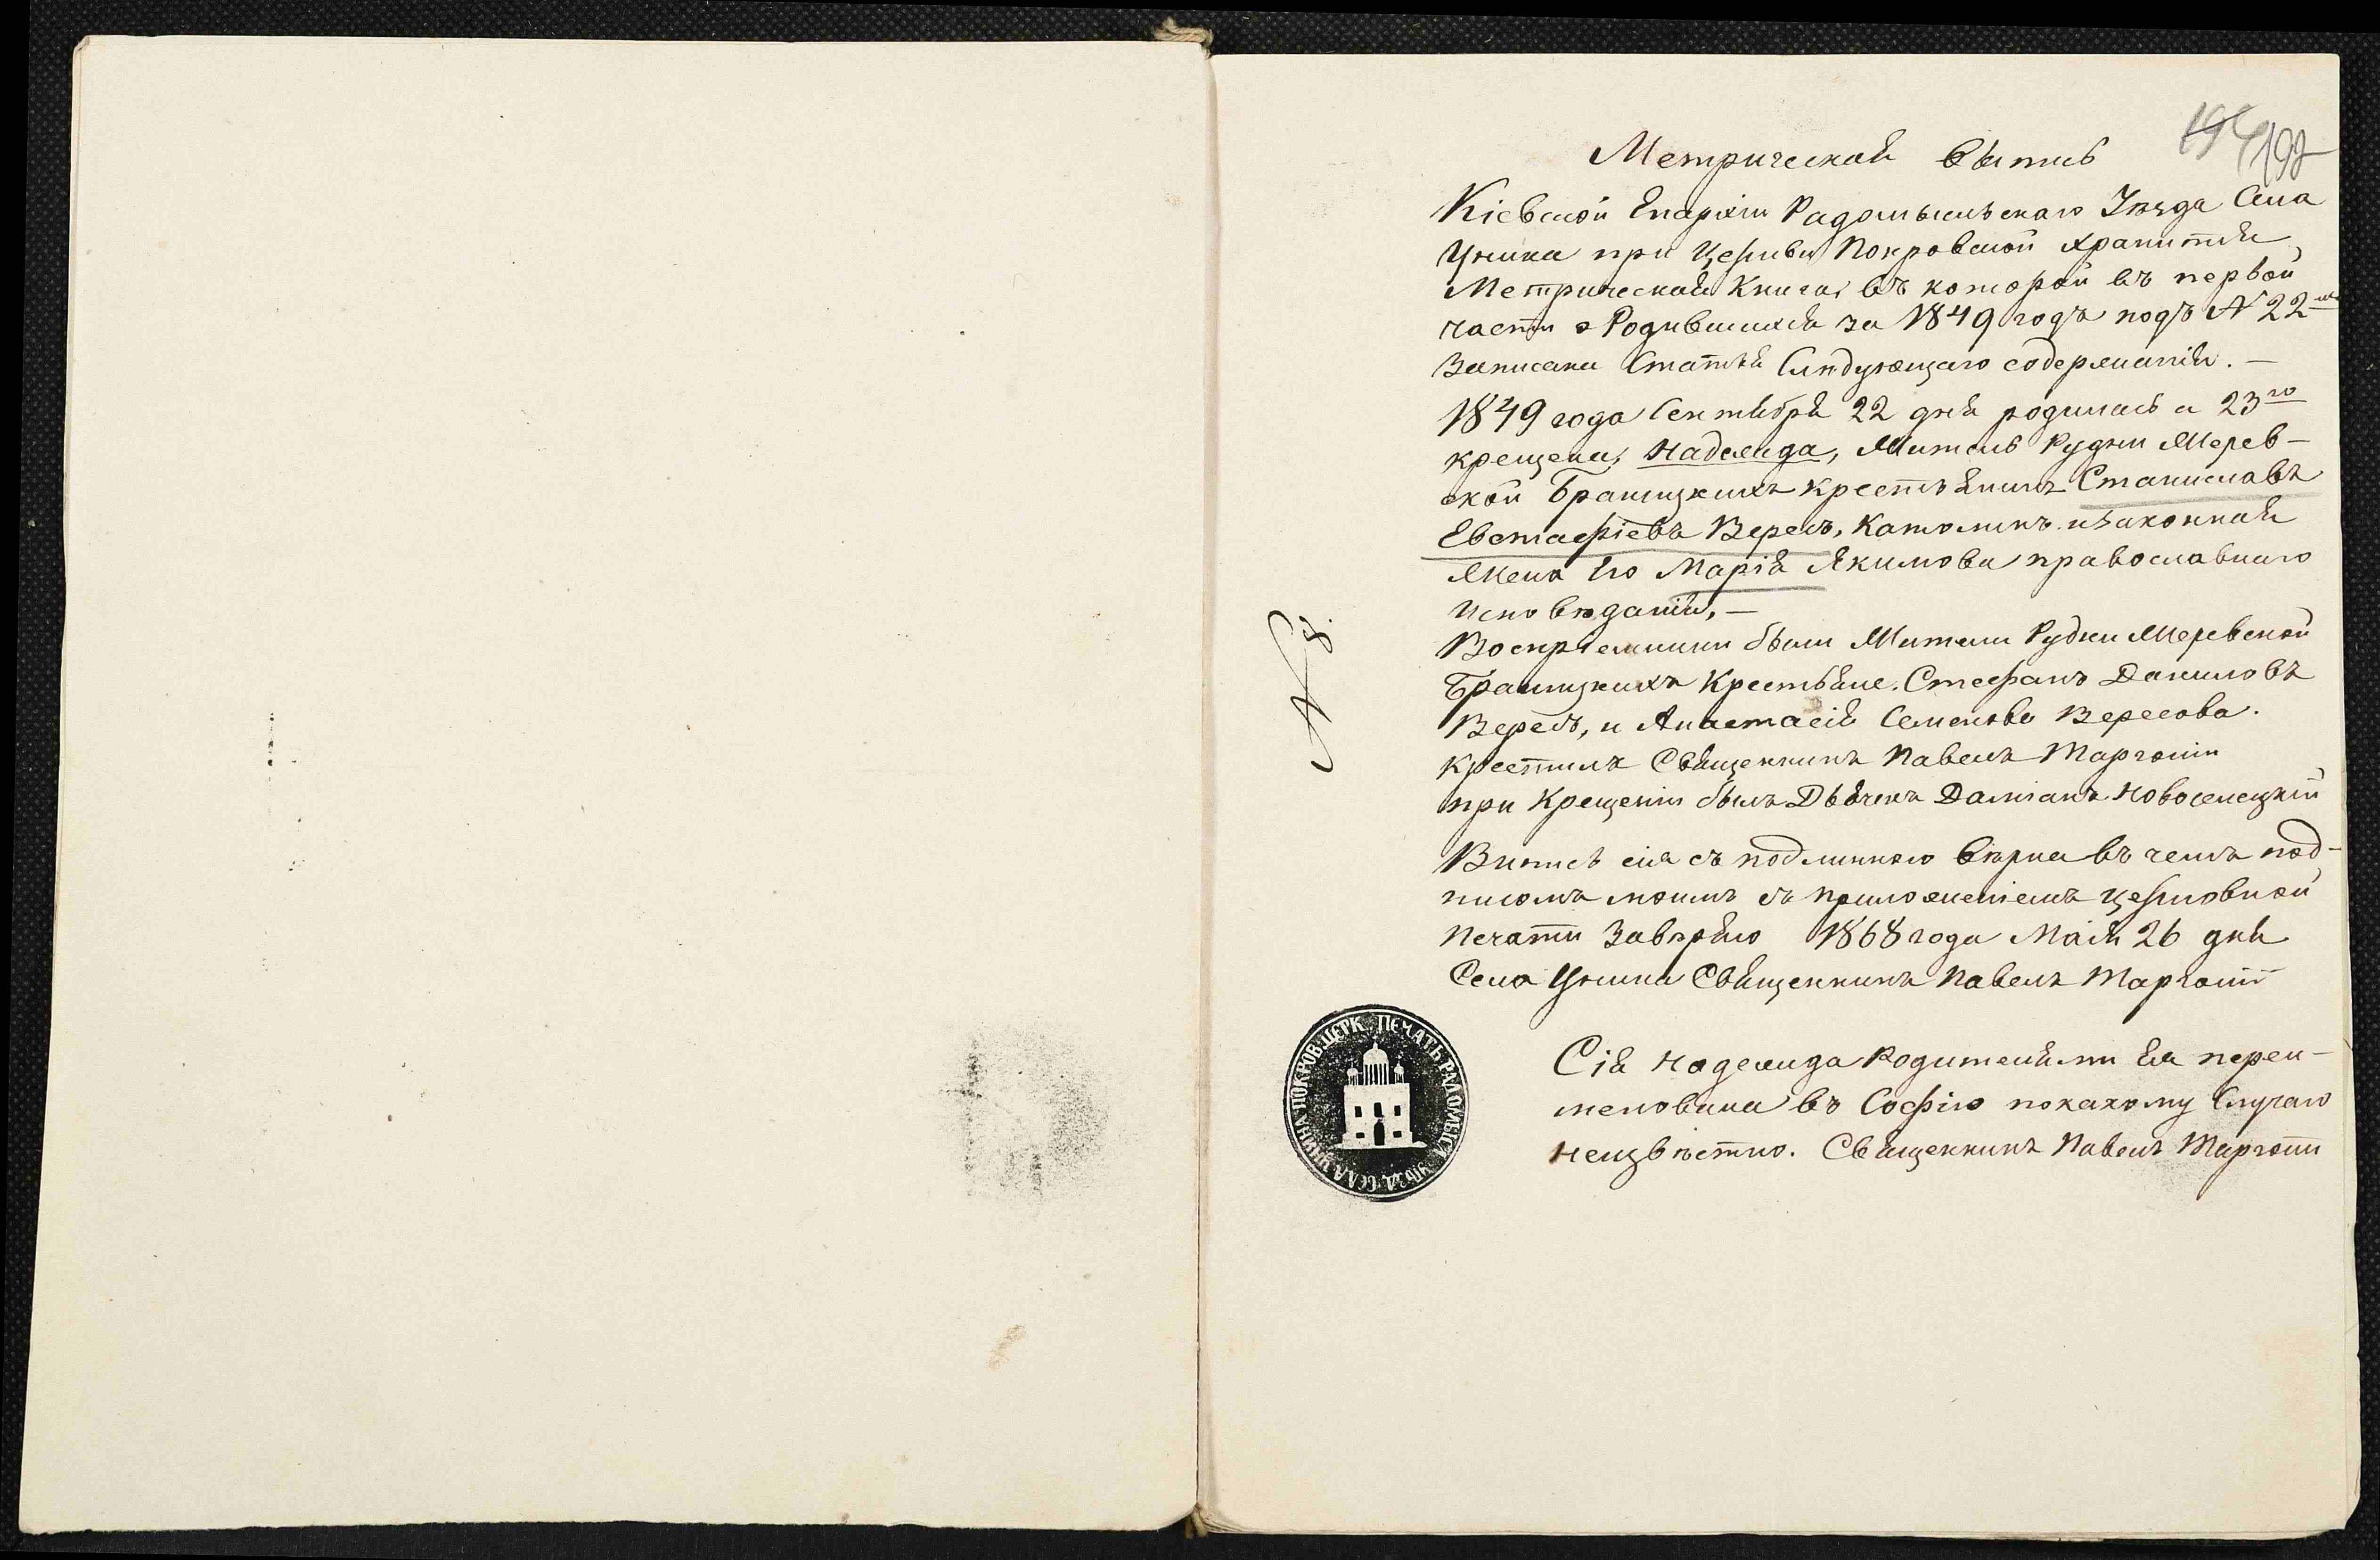 194 192
Метрическая выпись
Кіевской Епархіи Радомысльскаго Уѣзда Села
Унина при Церкви Покровской хранится
Метрическая Книга, въ которой въ первой
части о Родившихся за 1849 годъ подъ N 22мъ
Записана Статья Слѣдующаго содержанія. —
1849 года Сентября 22 дня родилась а 23го
крещена, Надежда, Житель Рудни Жерев-
ской Браницкихъ крестьянинъ Станиславъ
Евстафіевъ Вересъ, Католикъ и Законная
Жена Его Марія Якимова православнаго
Исповѣданія, —
Воспріемники были Жители Рудни Жеревской
Браницкихъ Крестьяне. Стефанъ Даниловъ
Вересъ, и Анастасія Семенова Вересова.
Крестилъ Священникъ Павелъ
при Крещеніи былъ Дьячекъ Даміанъ Новоселецкій
Випись сія съ подлинною вѣрна въ чемъ под-
писомъ моимъ съ приложеніемъ церковной
Печати Завѣряю 1868 года Мая 26 дня
Села Унина Священникъ Павелъ
Сія Надежда Родителями Ея переи-
менована въ Софію покакому Случаю
неизвѣстно. Священникъ Павелъ
N 8.
ПЕЧАТЬ РАДОМЫСЛ УѢЗД СЕЛА УНИНА ПОКРОВ ЦЕРК